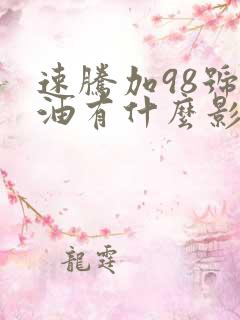 速騰加98號
油有什麼影
龍霆